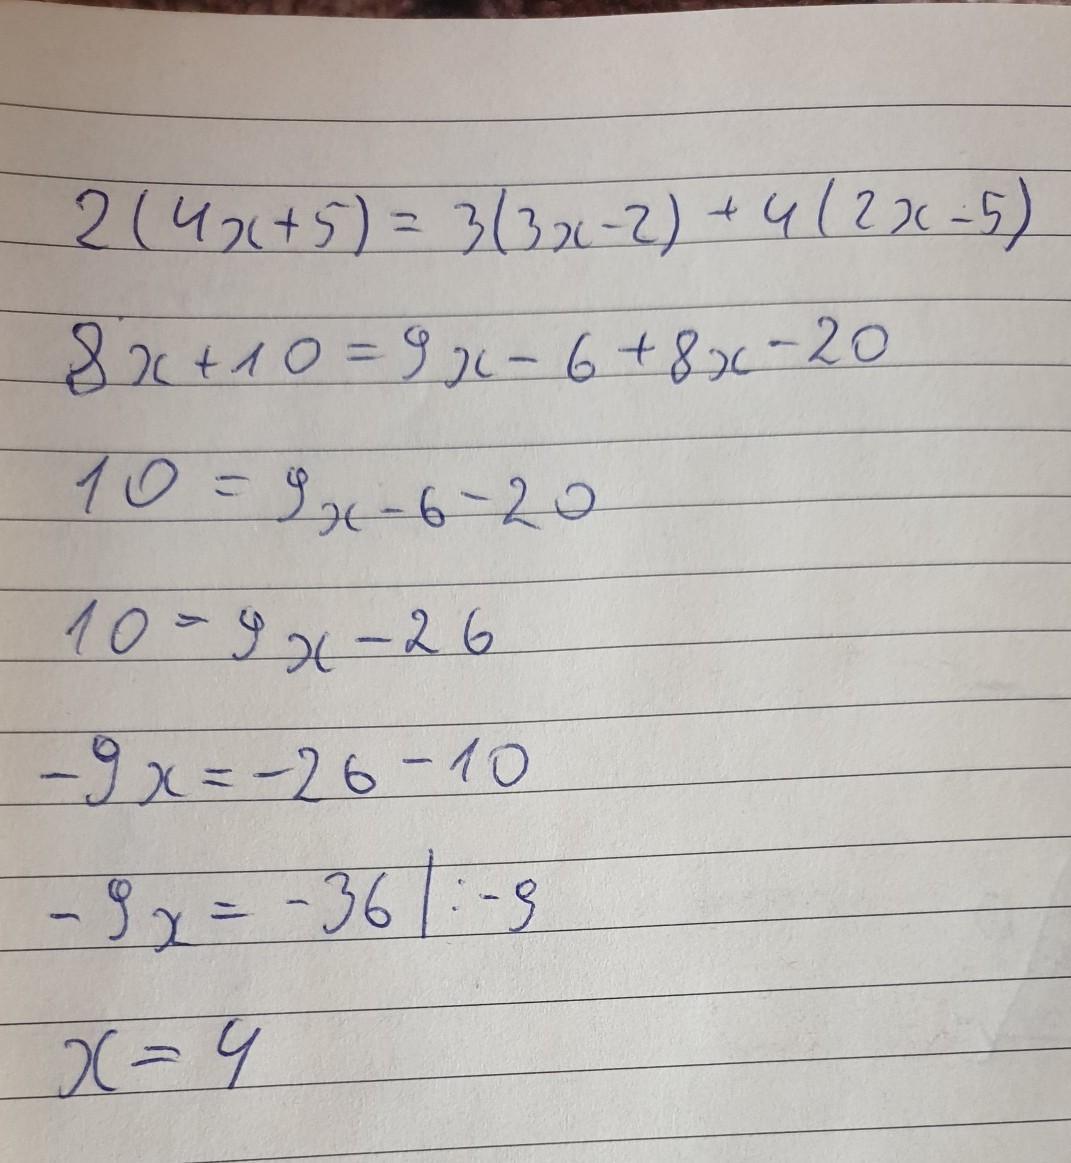 2(4x+5)=3(3x-2)+4(2x-5)
8x+10=9x-6+8x-20
10=9x-6-20
10=9x-26
-9x=-26-10
-9x=-36|:-9
x=4